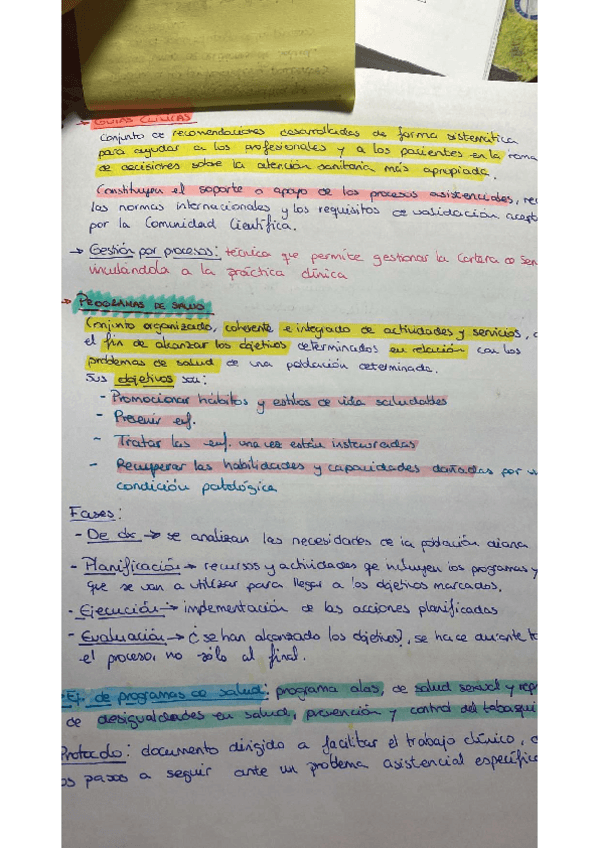 → GUÍAS CLÍNICAS
Conjunto de recomendaciones desarrolladas de forma sistemática
para ayudar a los profesionales y a los pacientes en la toma
de decisiones sobre la atención sanitaria más apropiada.
Constituyen el soporte o apoyo de los procesos asistenciales, re
las normas internacionales y los requisitos de validación acep
por la Comunidad Científica.
→ Gestión por procesos: técnica que permite gestionar la Cartera de Ser
vinculándola a la práctica clínica
→ PROGRAMAS DE SALUD
Conjunto organizado, coherente e integrado de actividades y servicios, c
el fin de alcanzar los objetivos determinados en relación con los
problemas de salud de una población determinada.
Sus objetivos son:
- Promocionar hábitos y estilos de vida saludables
- Prevenir enf.
- Tratar las enf. una vez están instauradas
- Recuperar las habilidades y capacidades dañadas por u
condición patológica
Fases:
- De dx → se analizan las necesidades de la población diana
- Planificación → recursos y actividades qe incluyen los programas y
que se van a utilizar para llegar a los objetivos marcados.
- Ejecución → implementación de las acciones planificadas
- Evaluación → ¿se han alcanzado los objetivos?, se hace durante to
el proceso, no sólo al final.
Ej. de programas de salud: programa alas, de salud sexual y repr
de desigualdades en salud, prevención y control del tabaqui
Protocolo: documento dirigido a facilitar el trabajo clínico, c
os pasos a seguir ante un problema asistencial específic